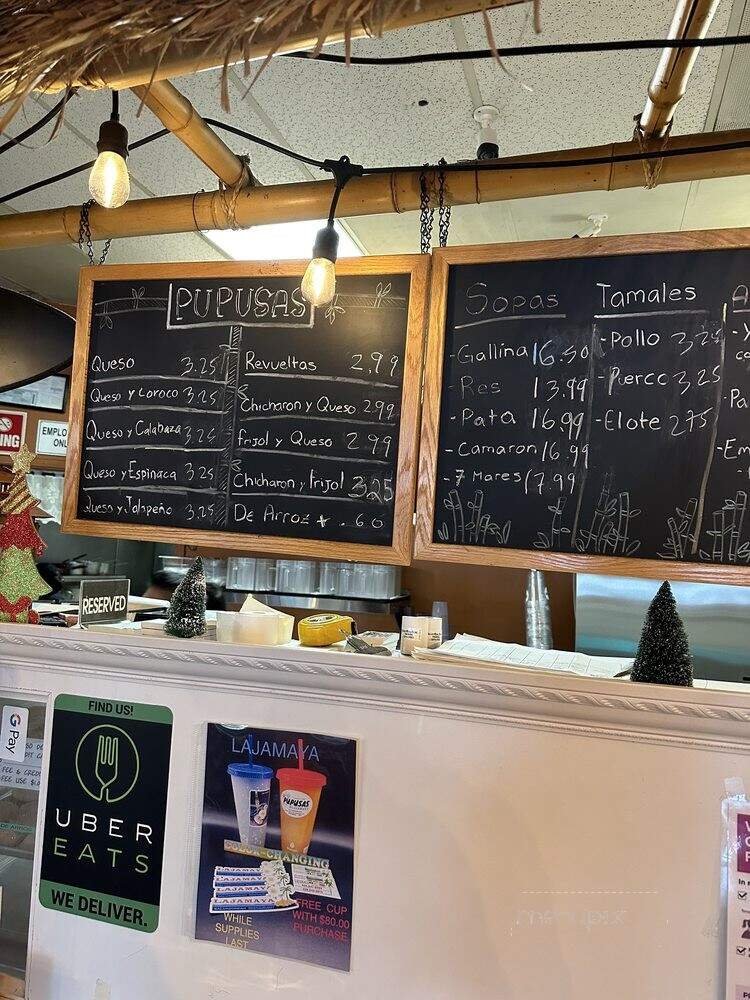 PUPUSAS
Queso 3.25
Queso y Loroco 3.25
Queso y Calabaza 3.25
Queso y Espinaca 3.25
Queso y Jalapeño 3.25
Revueltas 2,99
Chicharon y Queso 2.99
Frijol y Queso 2.99
Chicharon y Frijol 3,25
De Arroz + .60
Sopas
-Gallina 16.50
-Res 13.99
-Pata 16.99
-Camaron 16.99
-7 Mares 17.99
Tamales
-Pollo 3,25
-Puerco 3,25
-Elote 2.75
EMPLO
ONL
RESERVED
G Pay
FIND US!
UBER
EATS
WE DELIVER.
LAJAMAYA
PUPUSAS
COLOR-CHANGING
LAJAMAYA
LAJAMAYA
LAJAMAYA
LAJAMAYA
WHILE
SUPPLIES
LAST
FREE CUP
WITH $80.00
PURCHASE